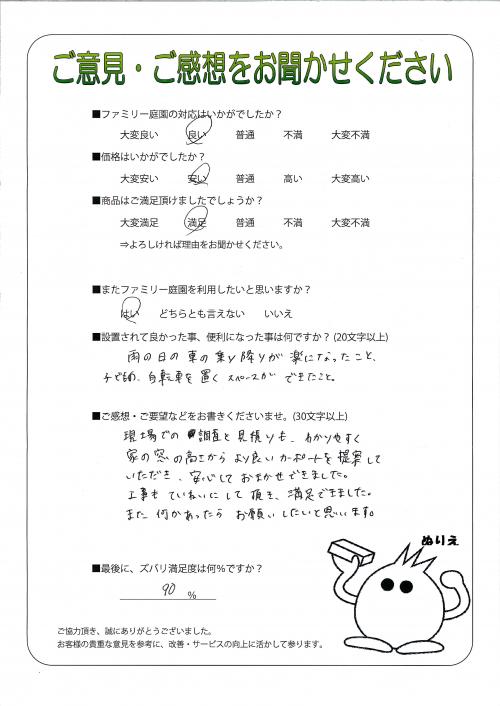 ご意見・ご感想をお聞かせください
■ファミリー庭園の対応はいかがでしたか?
大変良い 良い 普通 不満 大変不満
■価格はいかがでしたか?
大変安い 安い 普通 高い 大変高い
■商品はご満足頂けましたでしょうか?
大変満足 満足 普通 不満 大変不満
⇒よろしければ理由をお聞かせください。
■またファミリー庭園を利用したいと思いますか?
はい どちらとも言えない いいえ
■設置されて良かった事、便利になった事は何ですか? (20文字以上)
雨の日の車の乗り降りが楽になったこと、
自転車を置くスペースができたこと。
■ご感想・ご要望などをお書きくださいませ。(30文字以上)
現場での調査と見積りも、わかりやすく
家の窓の高さからより良いカーポートを提案して
いただき、安心しておまかせできました。
工事もていねいにして頂き、満足できました。
また何かあったらお願いしたいと思います。
ぬりえ
■最後に、ズバリ満足度は何%ですか?
90 %
ご協力頂き、誠にありがとうございました。
お客様の貴重な意見を参考に、改善・サービスの向上に活かして参ります。